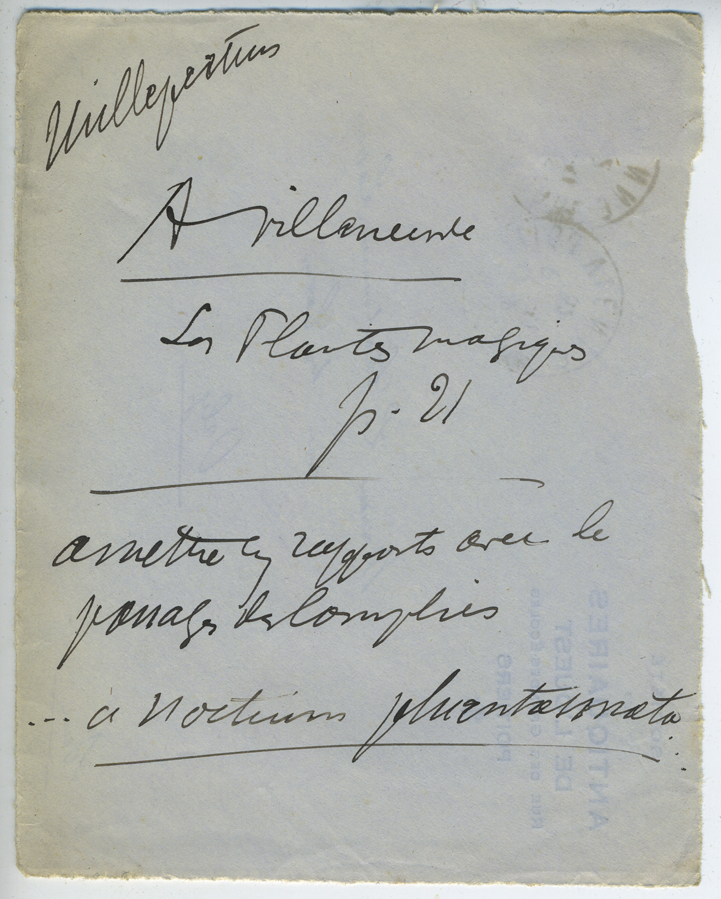 Millepertuis
A Villaneuve
Les Plantes magiques
p. 21
a mettre en rapports avec le
passages des Complies
... a noctium phantasmata
ANTIQUAIRES
DE L'OUEST